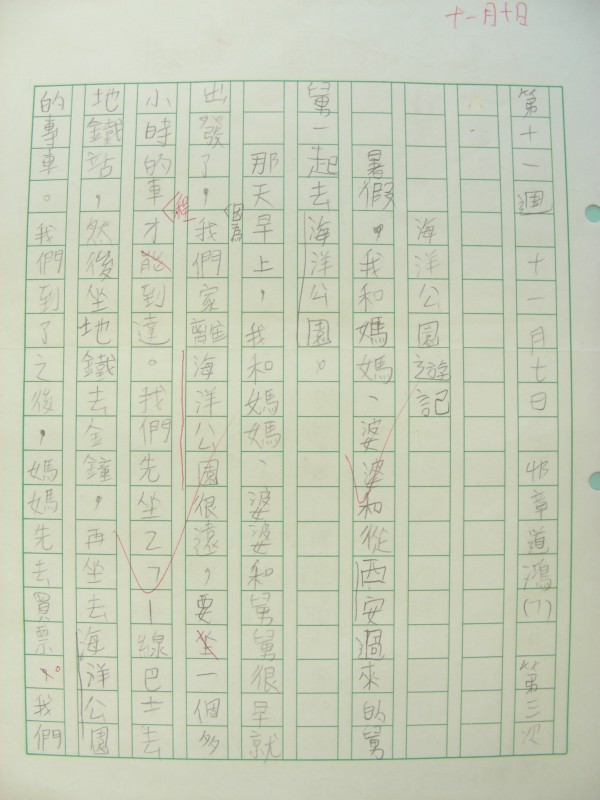 十一月十日
第十一週 十一月七日 邓章道鴻(7) 第三次
海洋公園遊記
暑假，我和媽媽、婆婆和從西安過來的舅
舅一起去海洋公園。
那天早上，我和媽媽、婆婆和舅舅很早就
出發了，因為我們家離海洋公園很遠，要坐一個多
小時的車程才能到達。我們先坐271線巴士去
地鐵站，然後坐地鐵去金鐘，再坐去海洋公園
的專車。我們到了之後，媽媽先去買票。我們